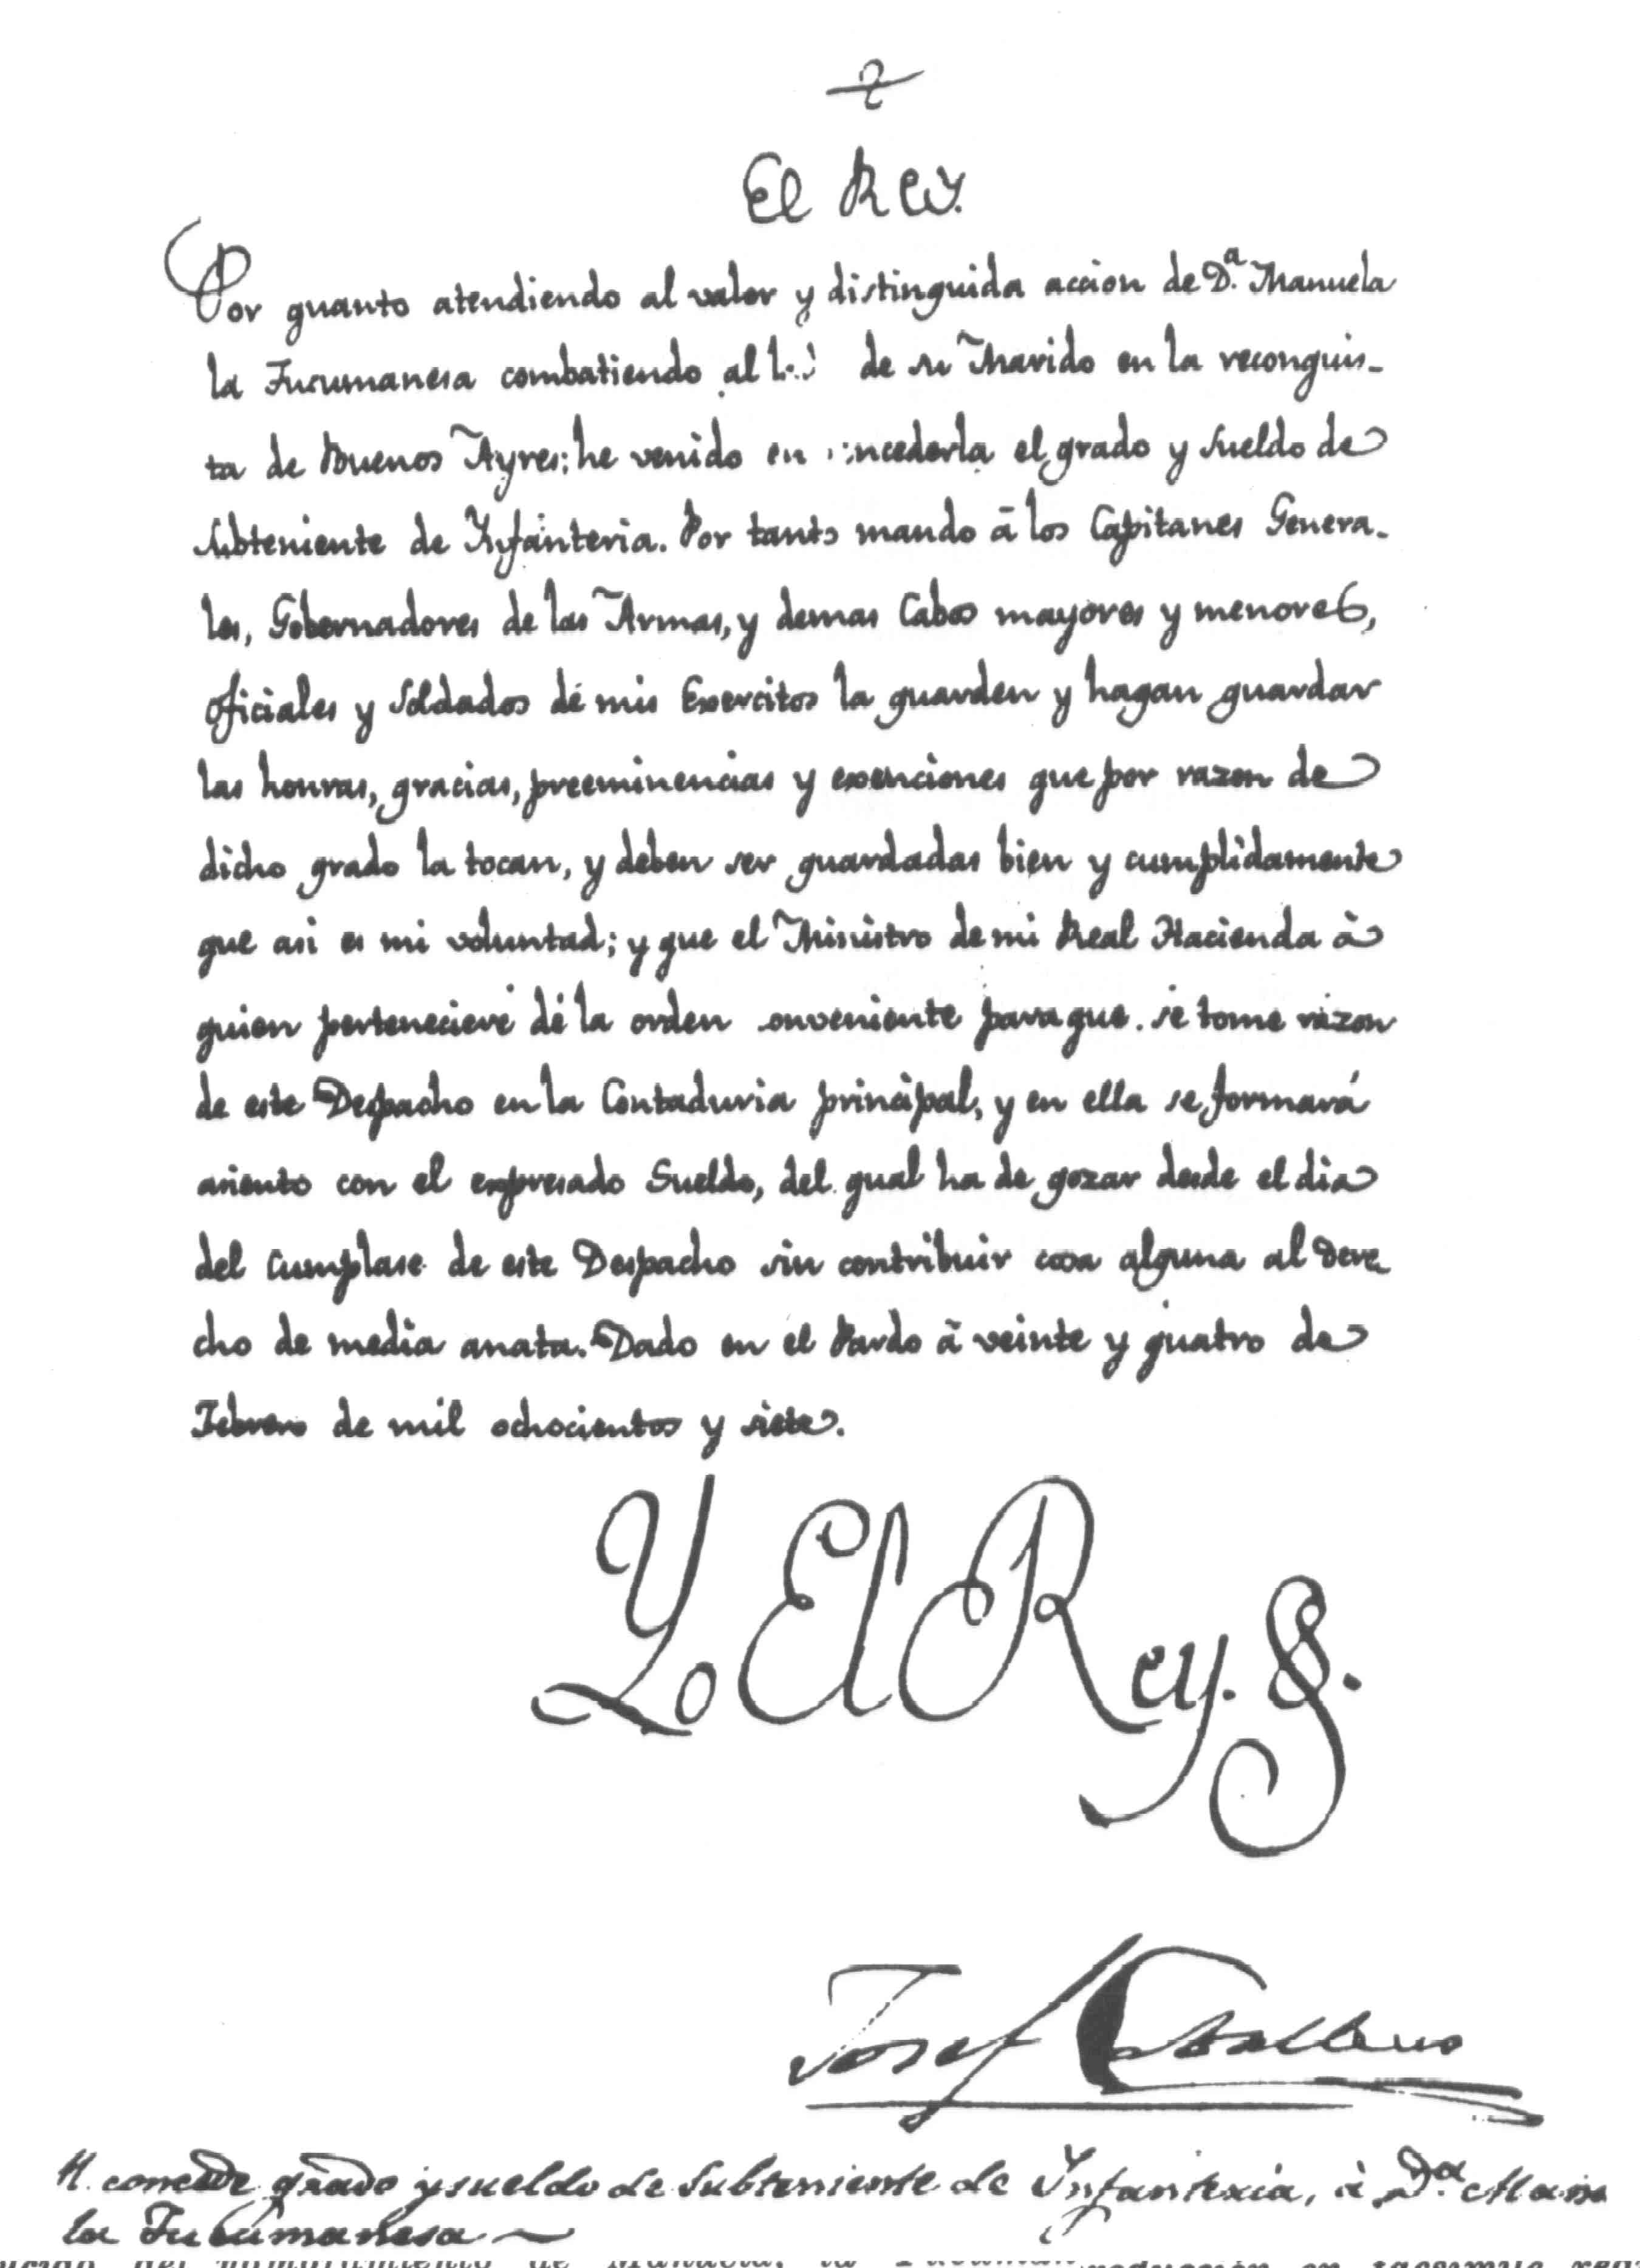 El Rey.
Por quanto atendiendo al valor y distinguida accion de D.ª Manuela
la Tucumanesa combatiendo al de su Marido en la reconquis-
ta de Buenos Ayres: he venido en ncederla el grado y sueldo de
subteniente de Infanteria. Por tanto mando â los Capitanes Genera-
les, Gobernadores de las Armas, y demas Cabos mayores y menores,
oficiales y soldados de mis Exercitos la guarden y hagan guardar
las honras, gracias, preeminencias y exenciones que por razon de
dicho grado la tocan, y deben ser guardadas bien y cumplidamente
que asi es mi voluntad; y que el Ministro de mi Real Hacienda à
quien perteneciere dé la orden onveniente para que se tome razon
de este Despacho en la Contaduria principal, y en ella se formará
asiento con el expresado Sueldo, del qual ha de gozar desde el dia
del Cumplase de este Despacho sin contribuir cosa alguna al dere
cho de media anata. Dado en el Pardo â veinte y quatro de
Febrero de mil ochocientos y siete.
Yo El Rey.
Josef Caballero
concede grado y sueldo de Subteniente de Ynfanteria, à D.ª Man
la Tucumanesa